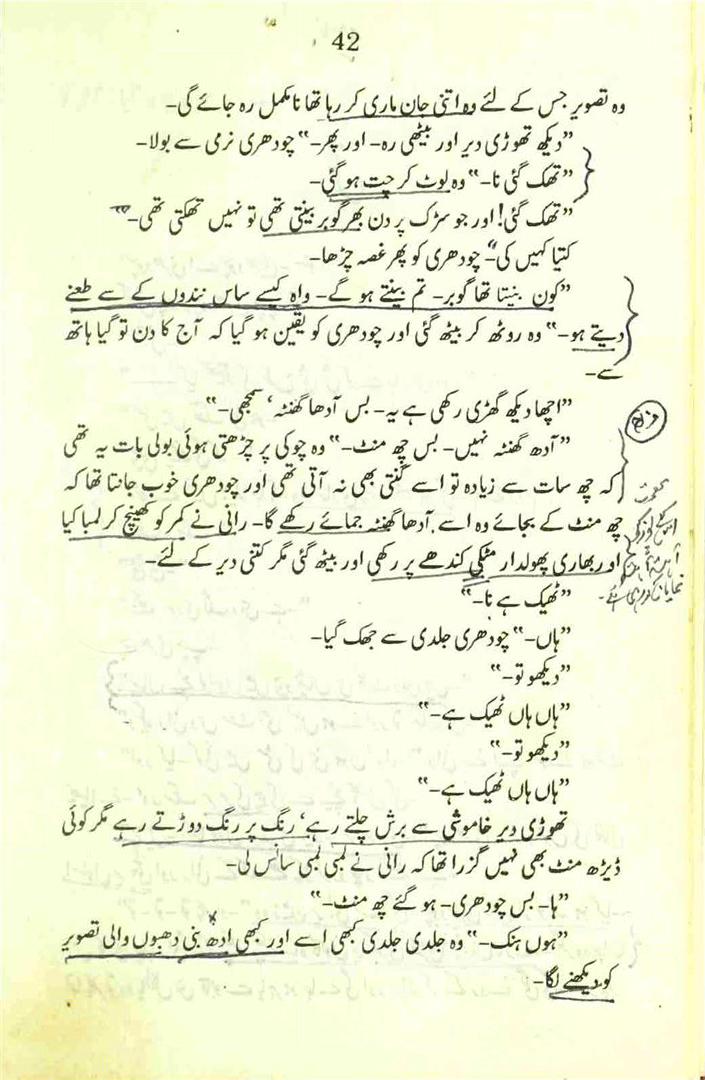 42
وہ تصویر جس کے لئے وہ اتنی جان ماری کر رہا تھا نامکمل رہ جائے گی-
”دیکھ تھوڑی دیر اور بیٹھی رہ- اور پھر-“ چودھری نرمی سے بولا-
”تھک گئی نا-“ وہ لوٹ کر چت ہو گئی-
”تھک گئی! اور جو سڑک پر دن بھر گوبر بینتی تھی تو نہیں تھکتی تھی-“
کتیا کہیں کی“- چودھری کو پھر غصہ چڑھا-
”کون بنیتا تھا گوبر- تم بینتے ہو گے- واہ کیسے ساس نندوں کے سے طعنے
دیتے ہو-“ وہ روٹھ کر بیٹھ گئی اور چودھری کو یقین ہو گیا کہ آج کا دن تو گیا ہاتھ
سے-
”اچھا دیکھ گھڑی رکھی ہے یہ- بس آدھا گھنٹہ‘ سمجھی-“
”آدھ گھنٹہ نہیں- بس چھ منٹ-“ وہ چوکی پر چڑھتی ہوئی بولی بات یہ تھی
کہ چھ سات سے زیادہ تو اسے گنتی بھی نہ آتی تھی اور چودھری خوب جانتا تھا کہ
چھ منٹ کے بجائے وہ اسے آدھا گھنٹہ جمائے رکھے گا- رانی نے کمر کو کھینچ کر لمبا کیا
اور بھاری پھولدار مٹکی کندھے پر رکھی اور بیٹھ گئی مگر کتنی دیر کے لئے-
”ٹھیک ہے نا-“
”ہاں-“ چودھری جلدی سے جھک گیا-
”دیکھو تو-“
”ہاں ہاں ٹھیک ہے-“
”دیکھو تو-“
”ہاں ہاں ٹھیک ہے-“
تھوڑی دیر خاموشی سے برش چلتے رہے‘ رنگ پر رنگ دوڑتے رہے مگر کوئی
ڈیڑھ منٹ بھی نہیں گزرا تھا کہ رانی نے لمبی لمبی سانس لی-
”ہا- بس چودھری- ہو گئے چھ منٹ-“
”ہوں ہنک-“ وہ جلدی جلدی کبھی اسے اور کبھی ادھ بنی دھبوں والی تصویر
کو دیکھنے لگا-